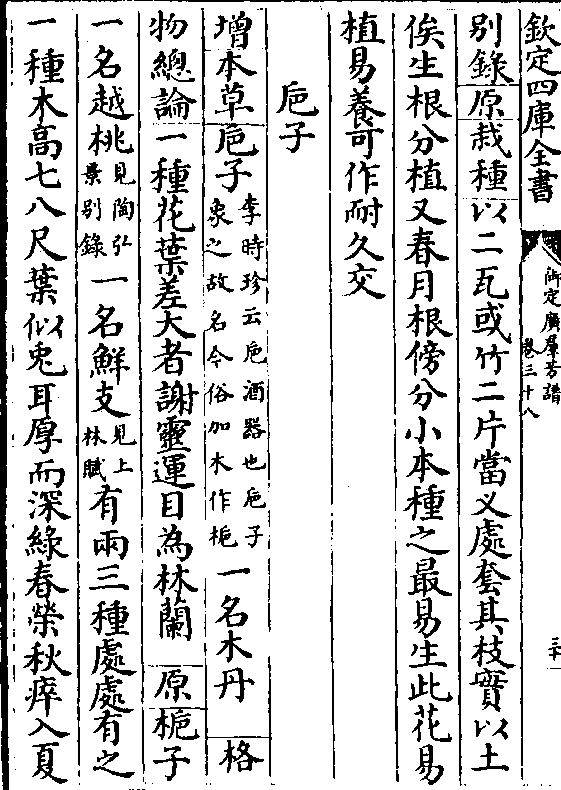 欽定四庫全書
御定廣羣芳譜
卷三十八
三十
別錄原栽種以二瓦或竹二片當叉處套其枝實以土
俟生根分植又春月根傍分小本種之最易生此花易
植易養可作耐久交
巵子
增本草巵子李時珍云巵酒器也巵子
象之故名今俗加木作梔
一名木丹 格
物總論一種花葉差大者謝靈運目為林蘭 原梔子
一名越桃見陶弘
景別錄
一名鮮支見上
林賦
有兩三種處處有之
一種木高七八尺葉似兎耳厚而深綠春榮秋瘁入夏